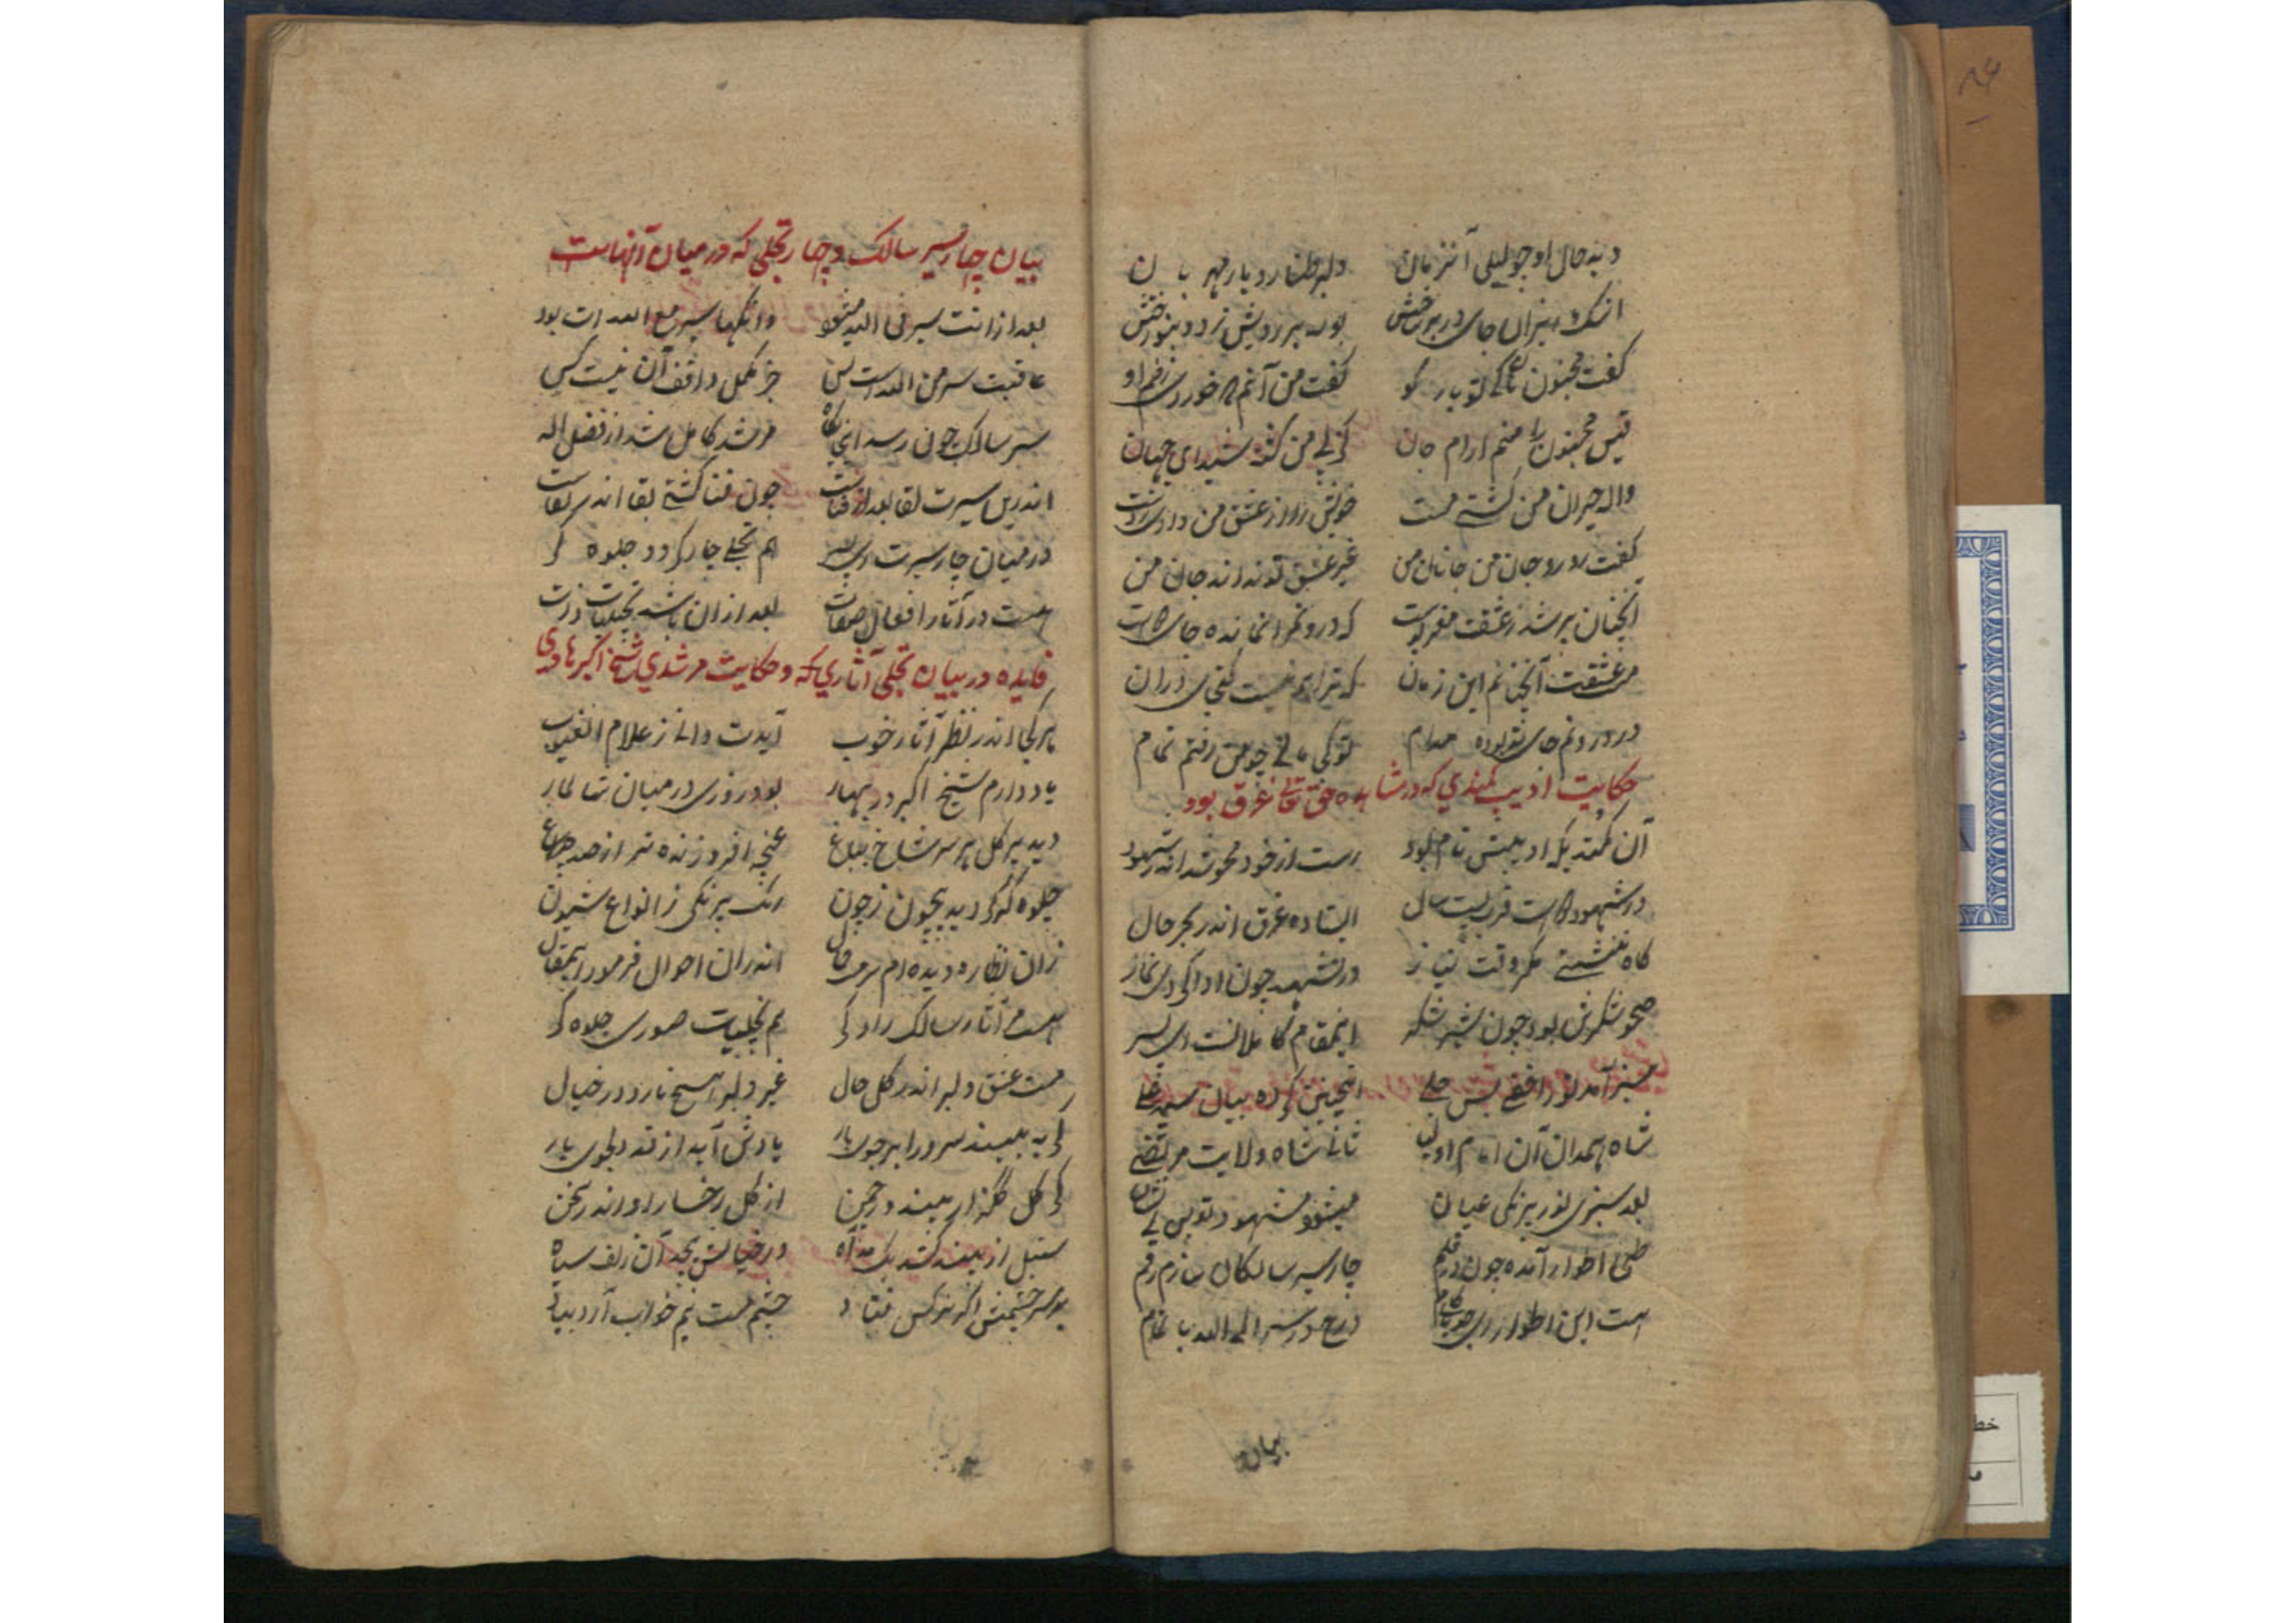 دید حال او چو لیلی آنزمان دلبر طناز و یار مهربان
بوسه بر رویش زد و بنواختش
گفت مجنون کو گفت من آنم که خوردی زخم او
قیس مجنون را منم آرام جان کز پی من گشته شیدای جهان
واله حیران من گشتی مست خویش را از عشق من دادی ز دست
گفت رو رو جان من جانان من غیر عشق تو نداند جان من
آنچنان پر شد ز عشقت مغز و پوست که درو فکر ترا نمانده جای
من عشقت آنچنانم این زمان که ترا هم نیست گنجی در آن
در درونم جای تو بوده مدام تو کی مانی چو من رفتم تمام
حکایت ادیب کمندی که در مشاهده حق تعالی غرق بود
آن کمندیکه ادیبش نام بود رست از خود محو شد اندر شهود
در شهود قرب بیست سال ایستاده غرق اندر بحر حال
گاه بنشستی مگر وقت نیاز در تشهد چون ادا کردی نماز
صحو شکرش بود چون شیر شکر اینمقام کاملانست ای پسر
سبز آمد نور اخفی بس جلی اینچنین کرده بیان سید علی
شاه همدان آن امام اولیا ثانی شاه ولایت مرتضی
بعد سبزی نور بیرنگی عیان میشود مشهود تو پس بی نشان
طی اطوار آمده چون در قلم چار سیر سالکان سازم رقم
هست این اطوار درج در سیر الی الله با تمام
بیان
بیان چهار سیر سالک و چهار تجلی که در میان آنهاست
بعد از آنت سیر فی الله میشود وانگها سیر مع الله ات بود
عاقبت سیر من الله است بس جز مکمل واقف آن نیست کس
سیر سالک چون رسد اینجایگاه مرشد کامل شد از فضل اله
اندرین سیرت بقا بعد از فناست چون فنا گشتی بقا اندر بقاست
در میان چار سیرت ای پسر هم تجلی چار گردد جلوه گر
هست در آثار افعال صفات بعد از آن باشد تجلیات ذات
فایده در بیان تجلی آثاری که و حکایت مرشدی شیخ اکبر هادی
هر کجا اندر نظر آثار خوب آیدت دانی ز علام الغیوب
یاد دارم شیخ اکبر در بهار بود روزی در میان شالمار
دید بر گل بر سر شاخ بباغ غنچه افروزنده تر از صد چراغ
جلوه گر دید بیچون ز چون رنگ بیرنگی ز انواع شیون
زان نظاره دیده ام سرمست حال اندران احوال فرمود اینمقال
هست آثار سالک را دگر هم تجلیات صوری جلوه گر
مست عشق دلبر اندر کل حال غیر دلبر هیچ نارد در خیال
گر به بیند سرو را بر جویبار یادش آید از قد دلجوی یار
گر گل گلزار بیند در چمن از گل رخسار او راند سخن
سنبل ار بیند کشد یک مد آه در خیالش پیچد آن زلف سیاه
بر سر چشمش اگر نرگس فتاد چشم مست نیم خواب آرد بیاد